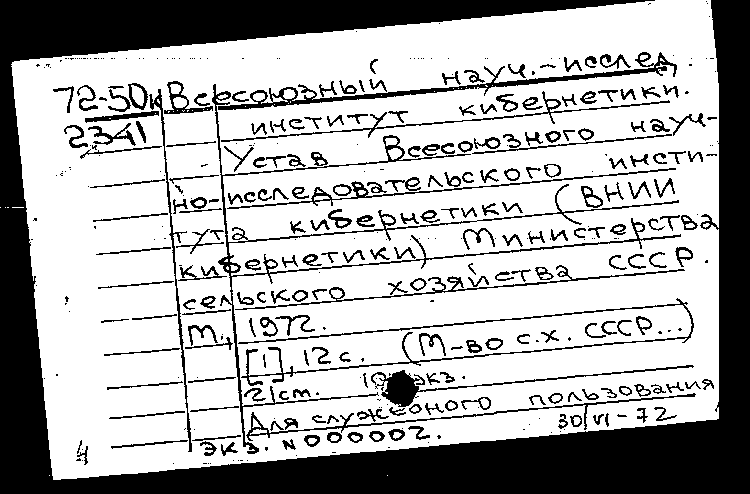 72-50к Всесоюзный науч.-исслед.
2341 институт кибернетики.
Устав Всесоюзного науч-
но-исследовательского инсти-
тута кибернетики (ВНИИ
кибернетики) Министерства
сельского хозяйства СССР.
М., 1972.
[1], 12 с. (М-во с.х. СССР...)
21 см. экз.
Для служебного пользования
экз. N 000002. 30/VI-72
4